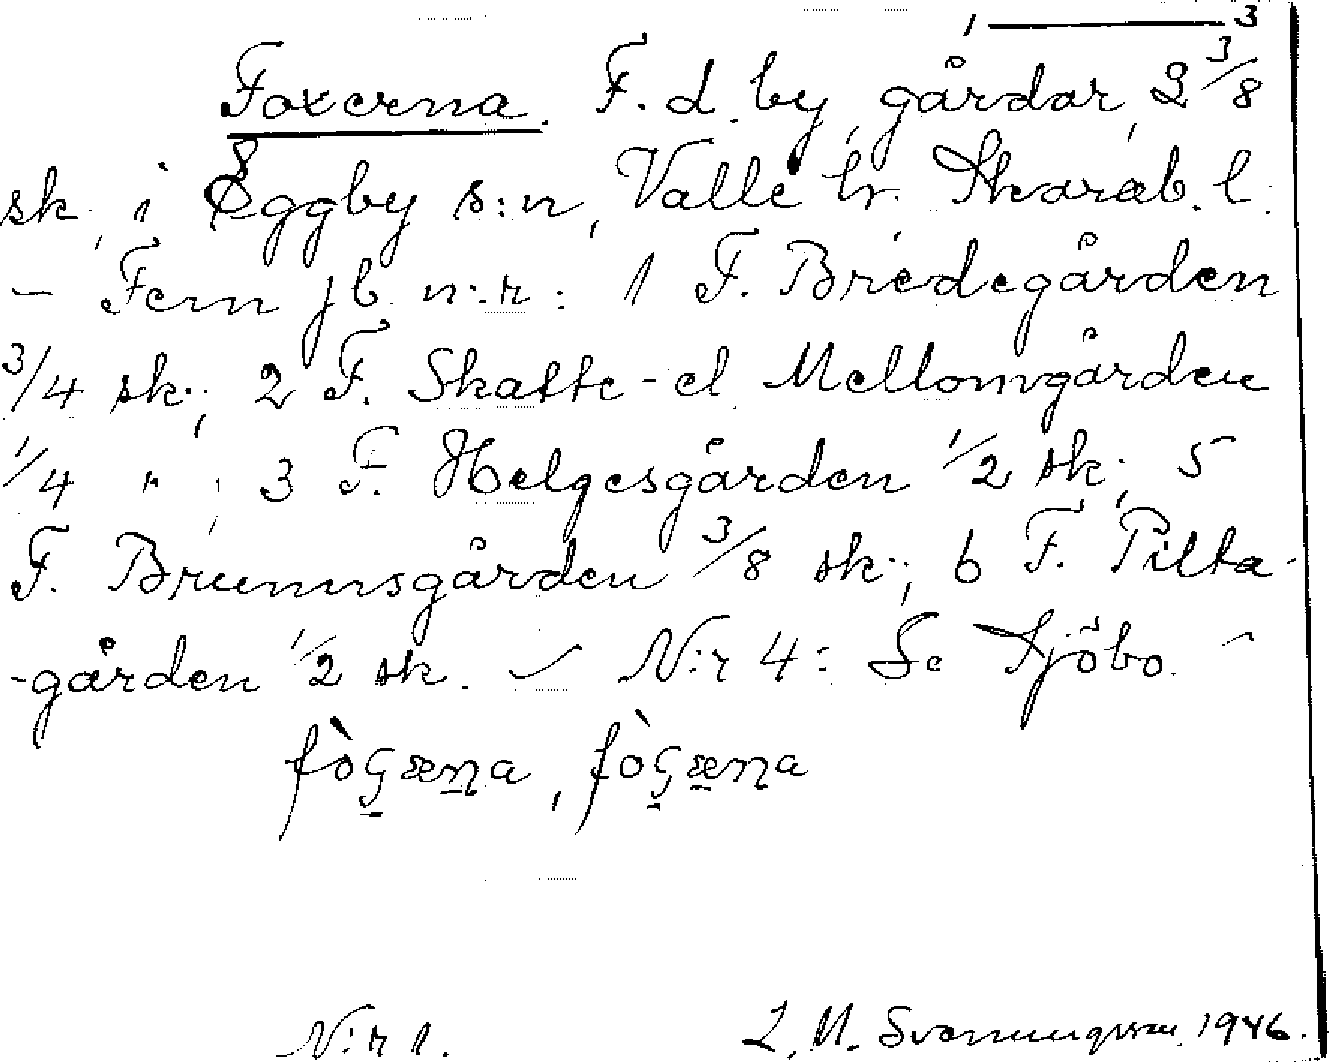 1 — 3
Foxerna. F. d. by, gårdar, 2 3/8
sk, i Eggby s:n, Valle hr. Skarab. l.
— Fem jb. n:r: 1 F. Bredegården
3/4 sk:, 2 F. Skatte- el. Mellomgården
1/4 " ; 3 F. Helgesgården 1/2 sk; 5
F. Brunnsgården 3/8 sk:, 6 F. Pilta-
-gården 1/2 sk. — N:r 4: Se Sjöbo. —
N:r 1.
1946.